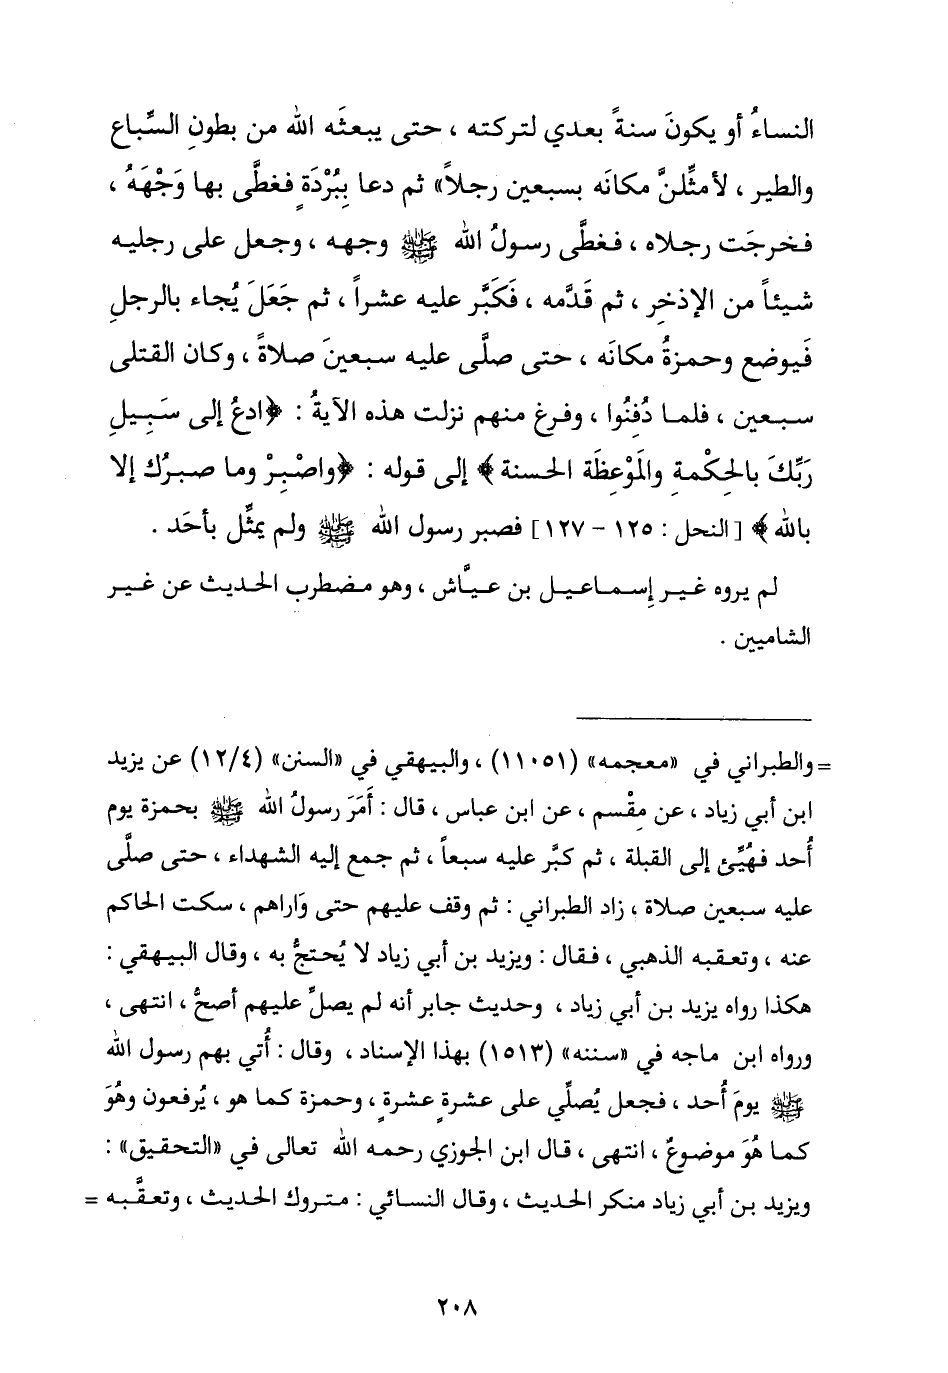 النساءُ أو يكونَ سنةً بعدي لتركته ، حتى يبعثَه الله من بطونِ السِّباع
والطير ، لأمثِّلنَّ مكانَه بسبعين رجلاً» ثم دعا بِبُرْدَةٍ فغطَّى بها وَجْهَهُ ،
فخرجَت رجلاه ، فغطَّى رسولُ الله ﷺ وجهه ، وجعل على رجليه
شيئاً من الإذخرِ ، ثم قدَّمه ، فَكَبَّر عليه عشراً ، ثم جَعَلَ يُجاء بالرجلِ
فَيوضع وحمزةُ مكانَه ، حتى صلَّى عليه سبعينَ صلاةً ، وكان القتلى
سبعين ، فلما دُفِنُوا ، وفرغ منهم نزلت هذه الآيةُ : ﴿ادعُ إلى سَبِيلِ
رَبِّكَ بالحِكْمةِ والمَوْعِظَة الحسنة﴾ إلى قوله : ﴿واصْبِرْ وما صبرُك إلا
بالله﴾ [النحل : ١٢٥ – ١٢٧] فصبر رسول الله ﷺ ولم يمثِّل بأحَد .
لم يروه غير إِسماعيل بن عيَّاش ، وهو مضطرب الحديث عن غير
الشاميين .
= والطبراني في «معجمه» (١١٠٥١) ، والبيهقي في «السنن» (١٢/٤) عن يزيد
ابن أبي زياد ، عن مِقْسم ، عن ابن عباس ، قال : أَمَرَ رسولُ الله ﷺ بحمزة يوم
أُحد فهُيِّئ إلى القبلة ، ثم كبَّر عليه سبعاً ، ثم جمع إليه الشهداء ، حتى صلَّى
عليه سبعين صلاة ، زاد الطبراني : ثم وقف عليهم حتى وَاراهم ، سكت الحاكم
عنه ، وتعقبه الذهبي ، فقال : ويزيد بن أبي زياد لا يُحتجُّ به ، وقال البيهقي :
هكذا رواه يزيد بن أبي زياد ، وحديث جابر أنه لم يصلِّ عليهم أصحُّ ، انتهى ،
ورواه ابن ماجه في «سننه» (١٥١٣) بهذا الإسناد ، وقال : أُتي بهم رسول الله
ﷺ يومَ أُحد ، فجعل يُصلِّي على عشرةٍ عشرةٍ ، وحمزة كما هو ، يُرفعون وهُوَ
كما هُوَ موضوعٌ ، انتهى ، قال ابن الجوزي رحمه الله تعالى في «التحقيق» :
ويزيد بن أبي زياد منكر الحديث ، وقال النسائي : متروك الحديث ، وتعقَّبه =
٢٠٨